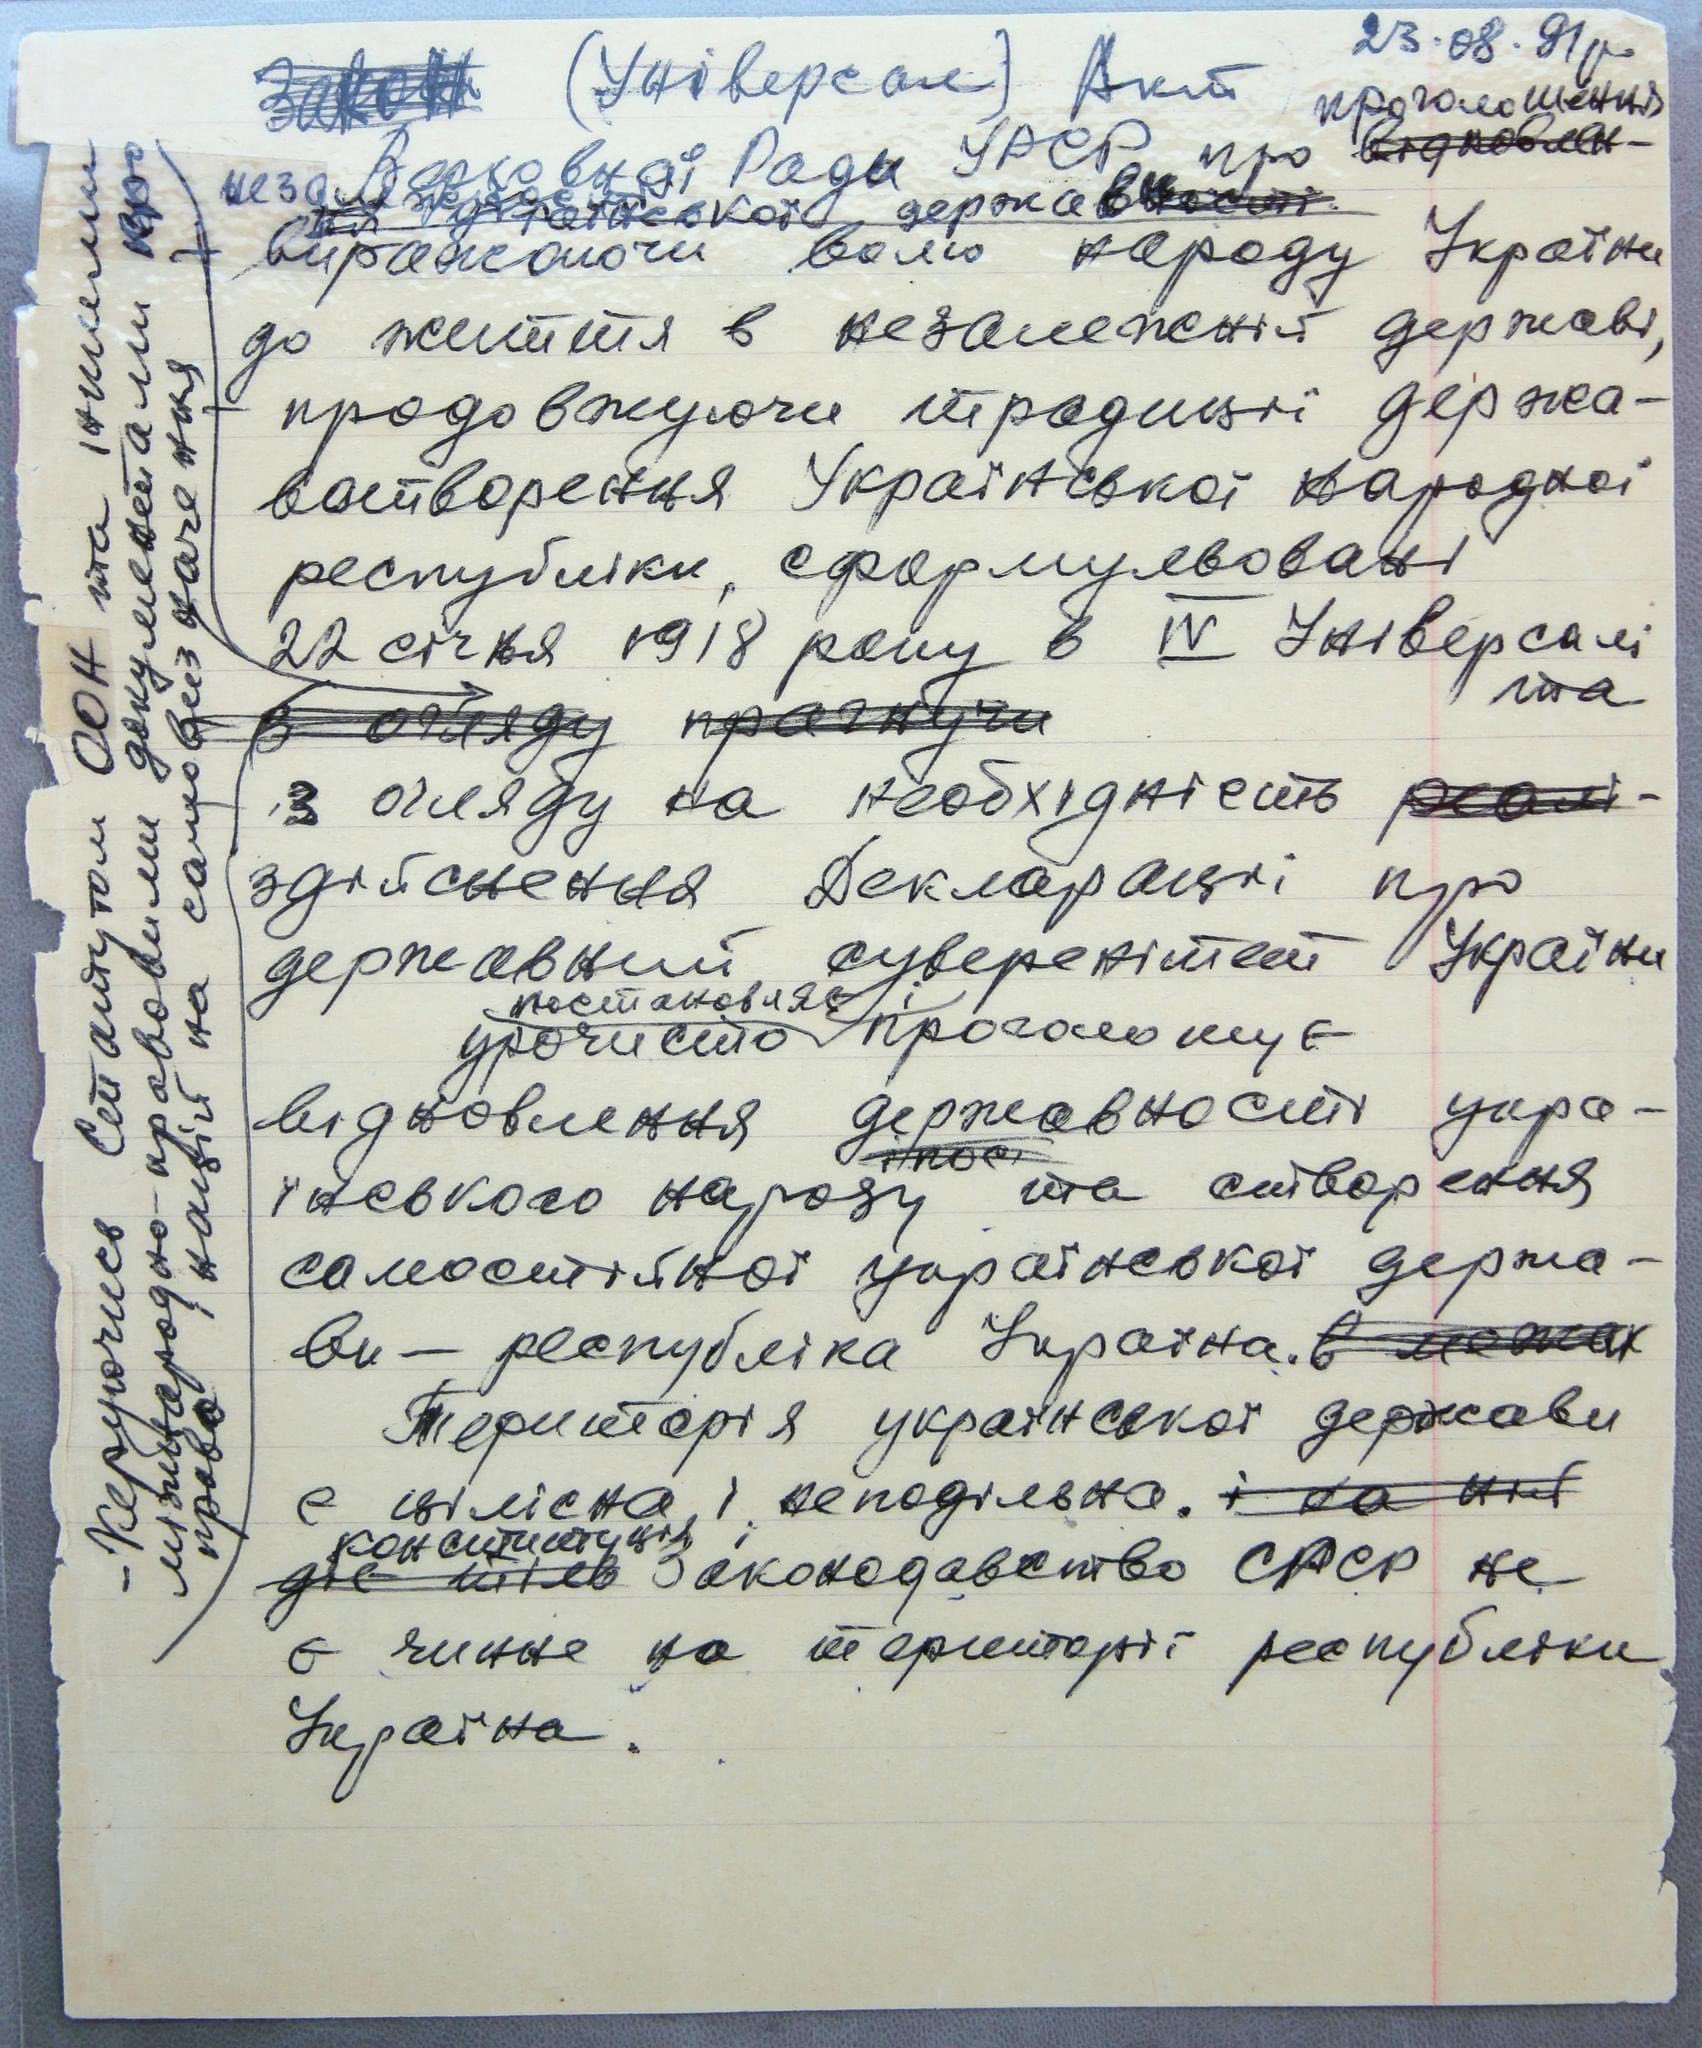 23.08.91 р.
Закон (Універсал) Акт
проголошення
Верховної Ради УРСР про відновлен-
незалежності
ня української державності
виражаючи волю народу України
до життя в незалежній державі,
продовжуючи традиції держа-
вотворення Української народної
республіки, сформульовані
22 січня 1918 року в IV Універсалі
та
з огляду прагнучи
з огляду на необхідність реалі-
здійснення Декларації про
державний суверенітет України
постановляє і
урочисто проголошує
відновлення державності укра-
їнського народу та створення
самостійної української держа-
ви – республіка Україна. в межах
Територія української держави
є цілісна і неподільна. і на ній
конституція і
діє тільв Законодавство СРСР не
є чинне на території республіки
Україна.
– Керуючись Статутом ООН та іншими
міжнародно-правовими документами про
право націй на самовизначення